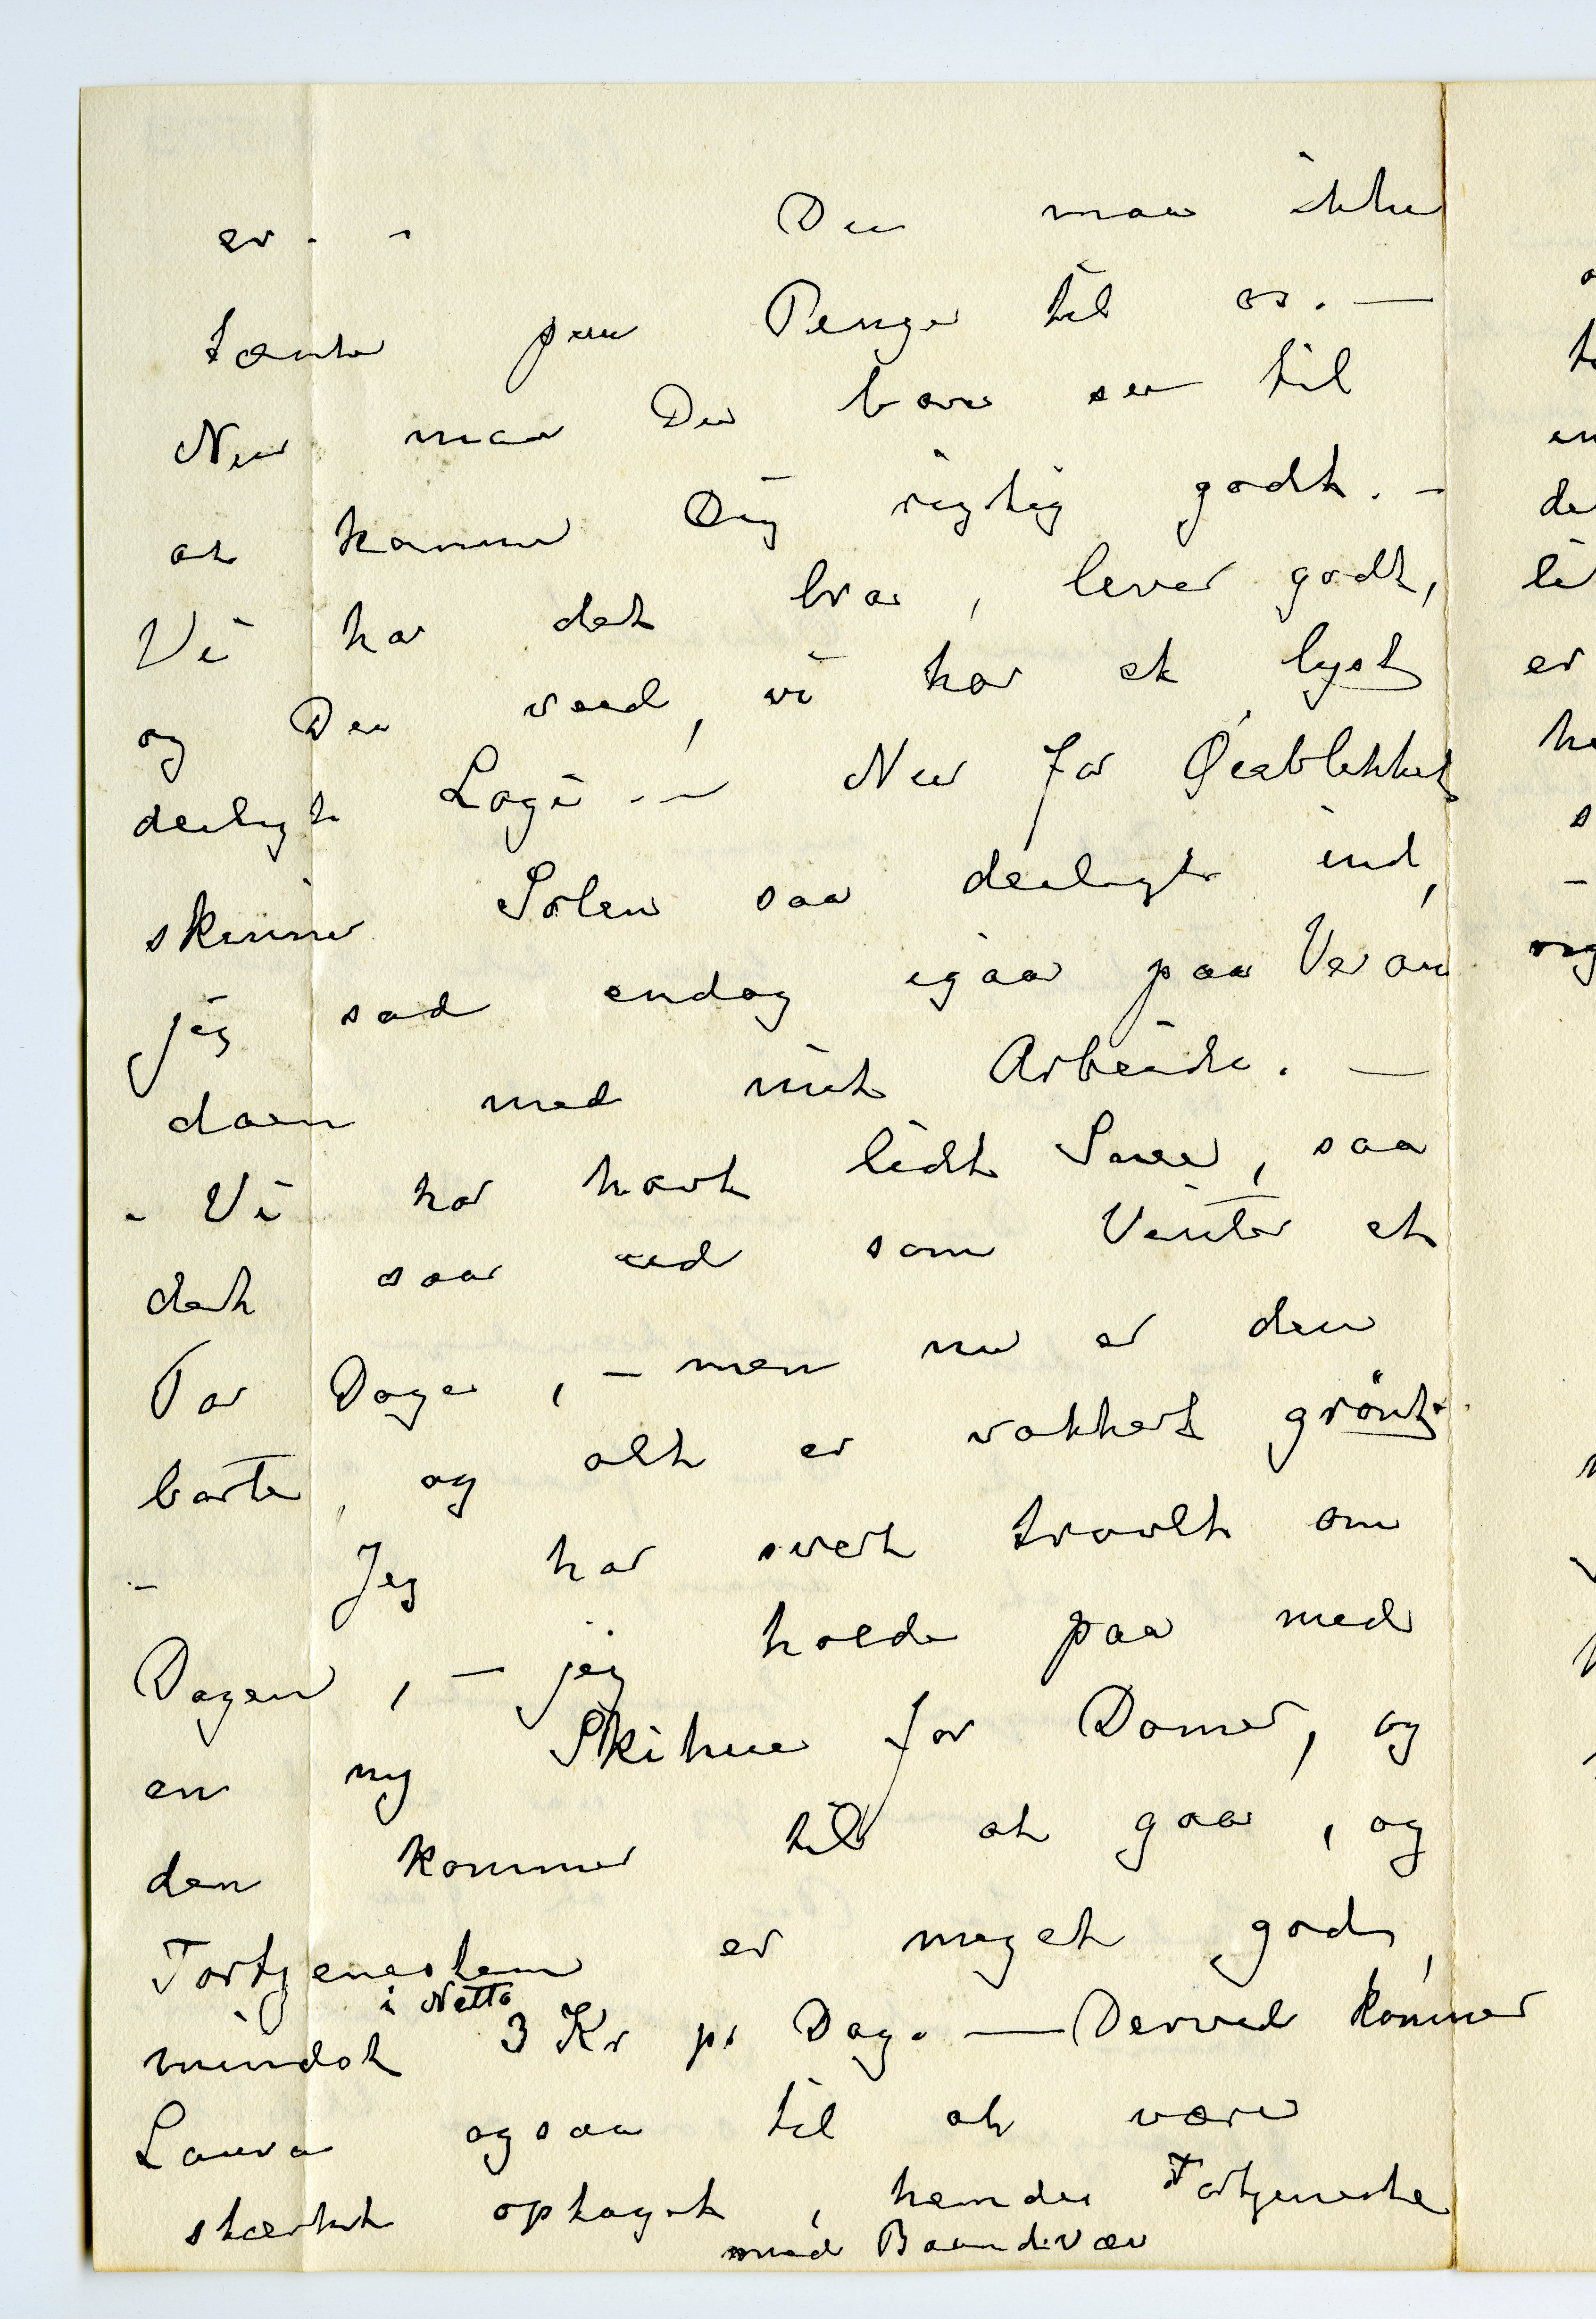 er. - Du maa ikke
tænke paa Penge til os. —
Nu maa Du bare se til
at komme Dig rigtig godt. -
Vi har det bra, lever godt,
og Du veed, vi har et lyst
deiligt Logi. — Nu for Øieblikket
skinner Solen saa deiligt ind,
jeg sad endog igaar paa Veran
daen med mit Arbeide. —
- Vi har havt lidt Snee, saa
det saa ud som Vinter et
Par Dage, — men nu er den
borte, og alt er vakkert grönt.
- Jeg har svert travlt om
Dagen, — jeg holder paa med
en ny Skihue for Damer, og
den kommer til at gaa, og
Fortjenesten er meget god,
i Netto
mindst 3 Kr pr Dag. — Derved kommer
Laura ogsaa til at være
stærkt optaget, hendes Fortjeneste
med Baandvæv
o
en
de
er
s
-
og